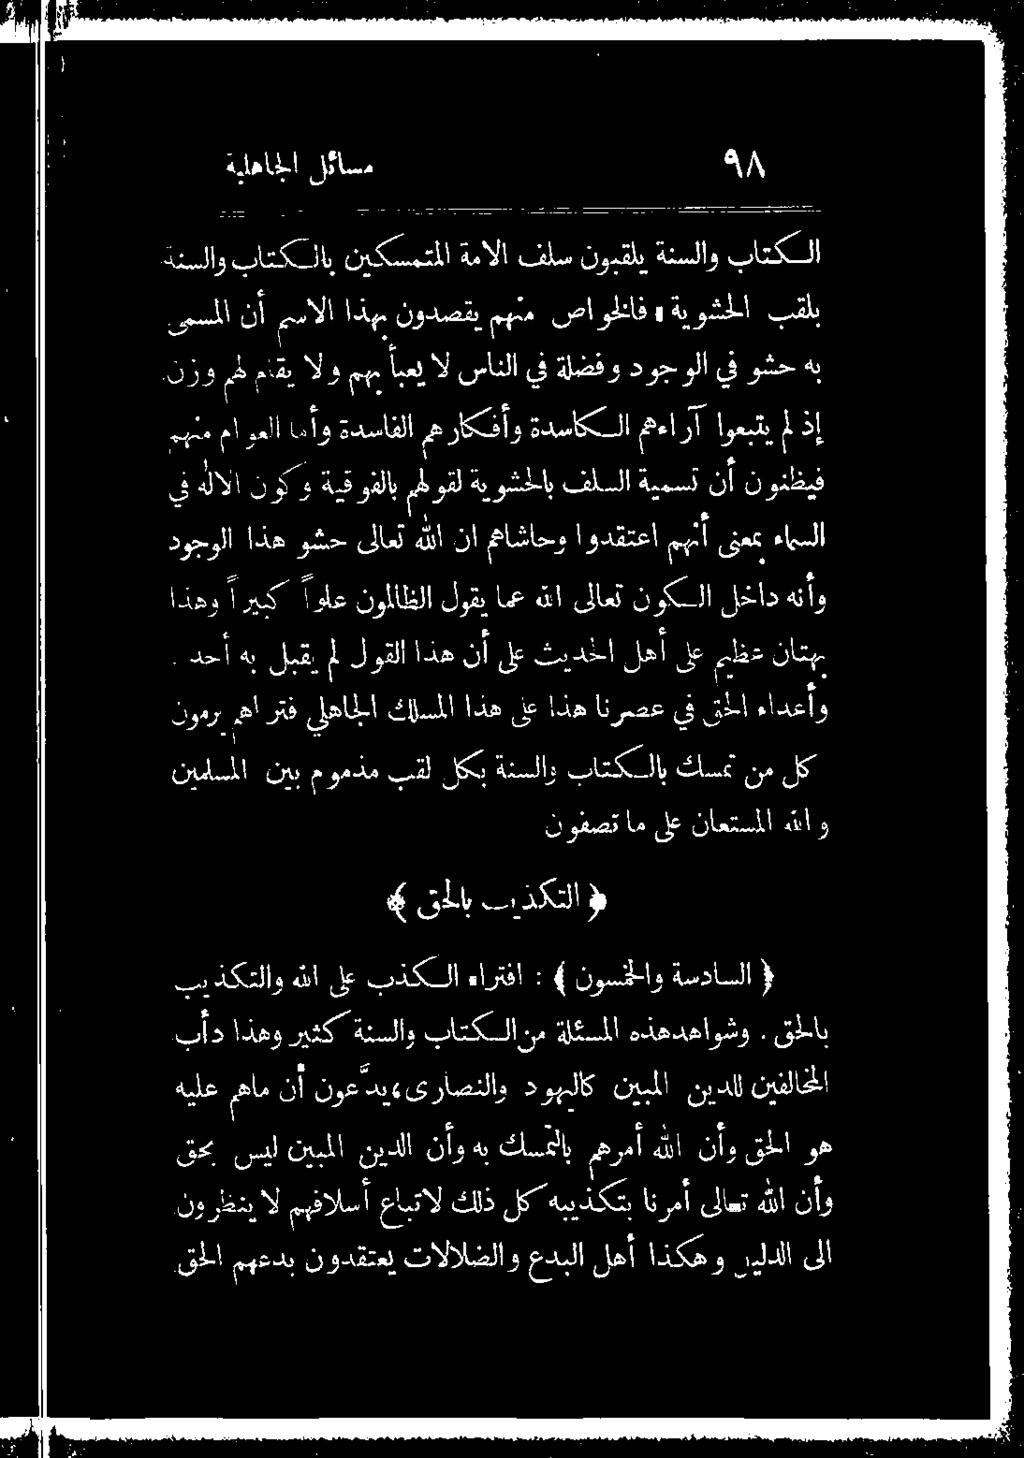 ٩٨ مسائل الجاهلية
الكتاب والسنة يلقبون سلف الامة المتمسكين بالكتاب والسنة
بلقب الحشوية، فالخواص منهم يقصدون بهذا الاسم أن المسمى
به حشو في الوجود وفضلة في الناس لا يعبأ بهم ولا يقام لهم وزن
إذ لم يتبعوا آراءهم الكاسدة وأفكارهم الفاسدة وأما العوام منهم
فيظنون أن تسمية السلف بالحشوية لقولهم بالفوقية وكون الاله في
السماء بمعنى أنهم اعتقدوا وحاشاهم ان الله تعالى حشو هذا الوجود
وأنه داخل الكون تعالى الله عما يقول الظالمون علواً كبيراً وهذا
بهتان عظيم على أهل الحديث على أن هذا القول لم يقبل به أحد .
وأعداء الحق في عصرنا هذا على هذا المسلك الجاهلي فتراهم يرمون
كل من تمسك بالكتاب والسنة بكل لقب مذموم بين المسلمين
والله المستعان على ما تصفون
﴿ التكذيب بالحق ﴾
﴿ السادسة والخمسون ﴾ : افتراء الكذب على الله والتكذيب
بالحق . وشواهد هذه المسئلة من الكتاب والسنة كثير وهذا دأب
المخالفين للدين المبين كاليهود والنصارى، يدّعون أن ماهم عليه
هو الحق وأن الله أمرهم بالتمسك به وأن الدين المبين ليس بحق
وأن الله تعالى أمرنا بتكذيبه كل ذلك لاتباع أسلافهم لا ينظرون
الى الدليل وهكذا أهل البدع والضلالات يعتقدون بدعهم الحق